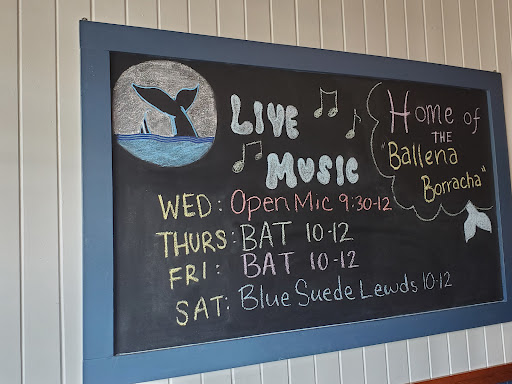 LIVE
MUSIC
Home of
THE
"Ballena
Borracha"
WED: Open Mic 9:30-12
THURS: BAT 10-12
FRI: BAT 10-12
SAT: Blue Suede Lewds 10-12